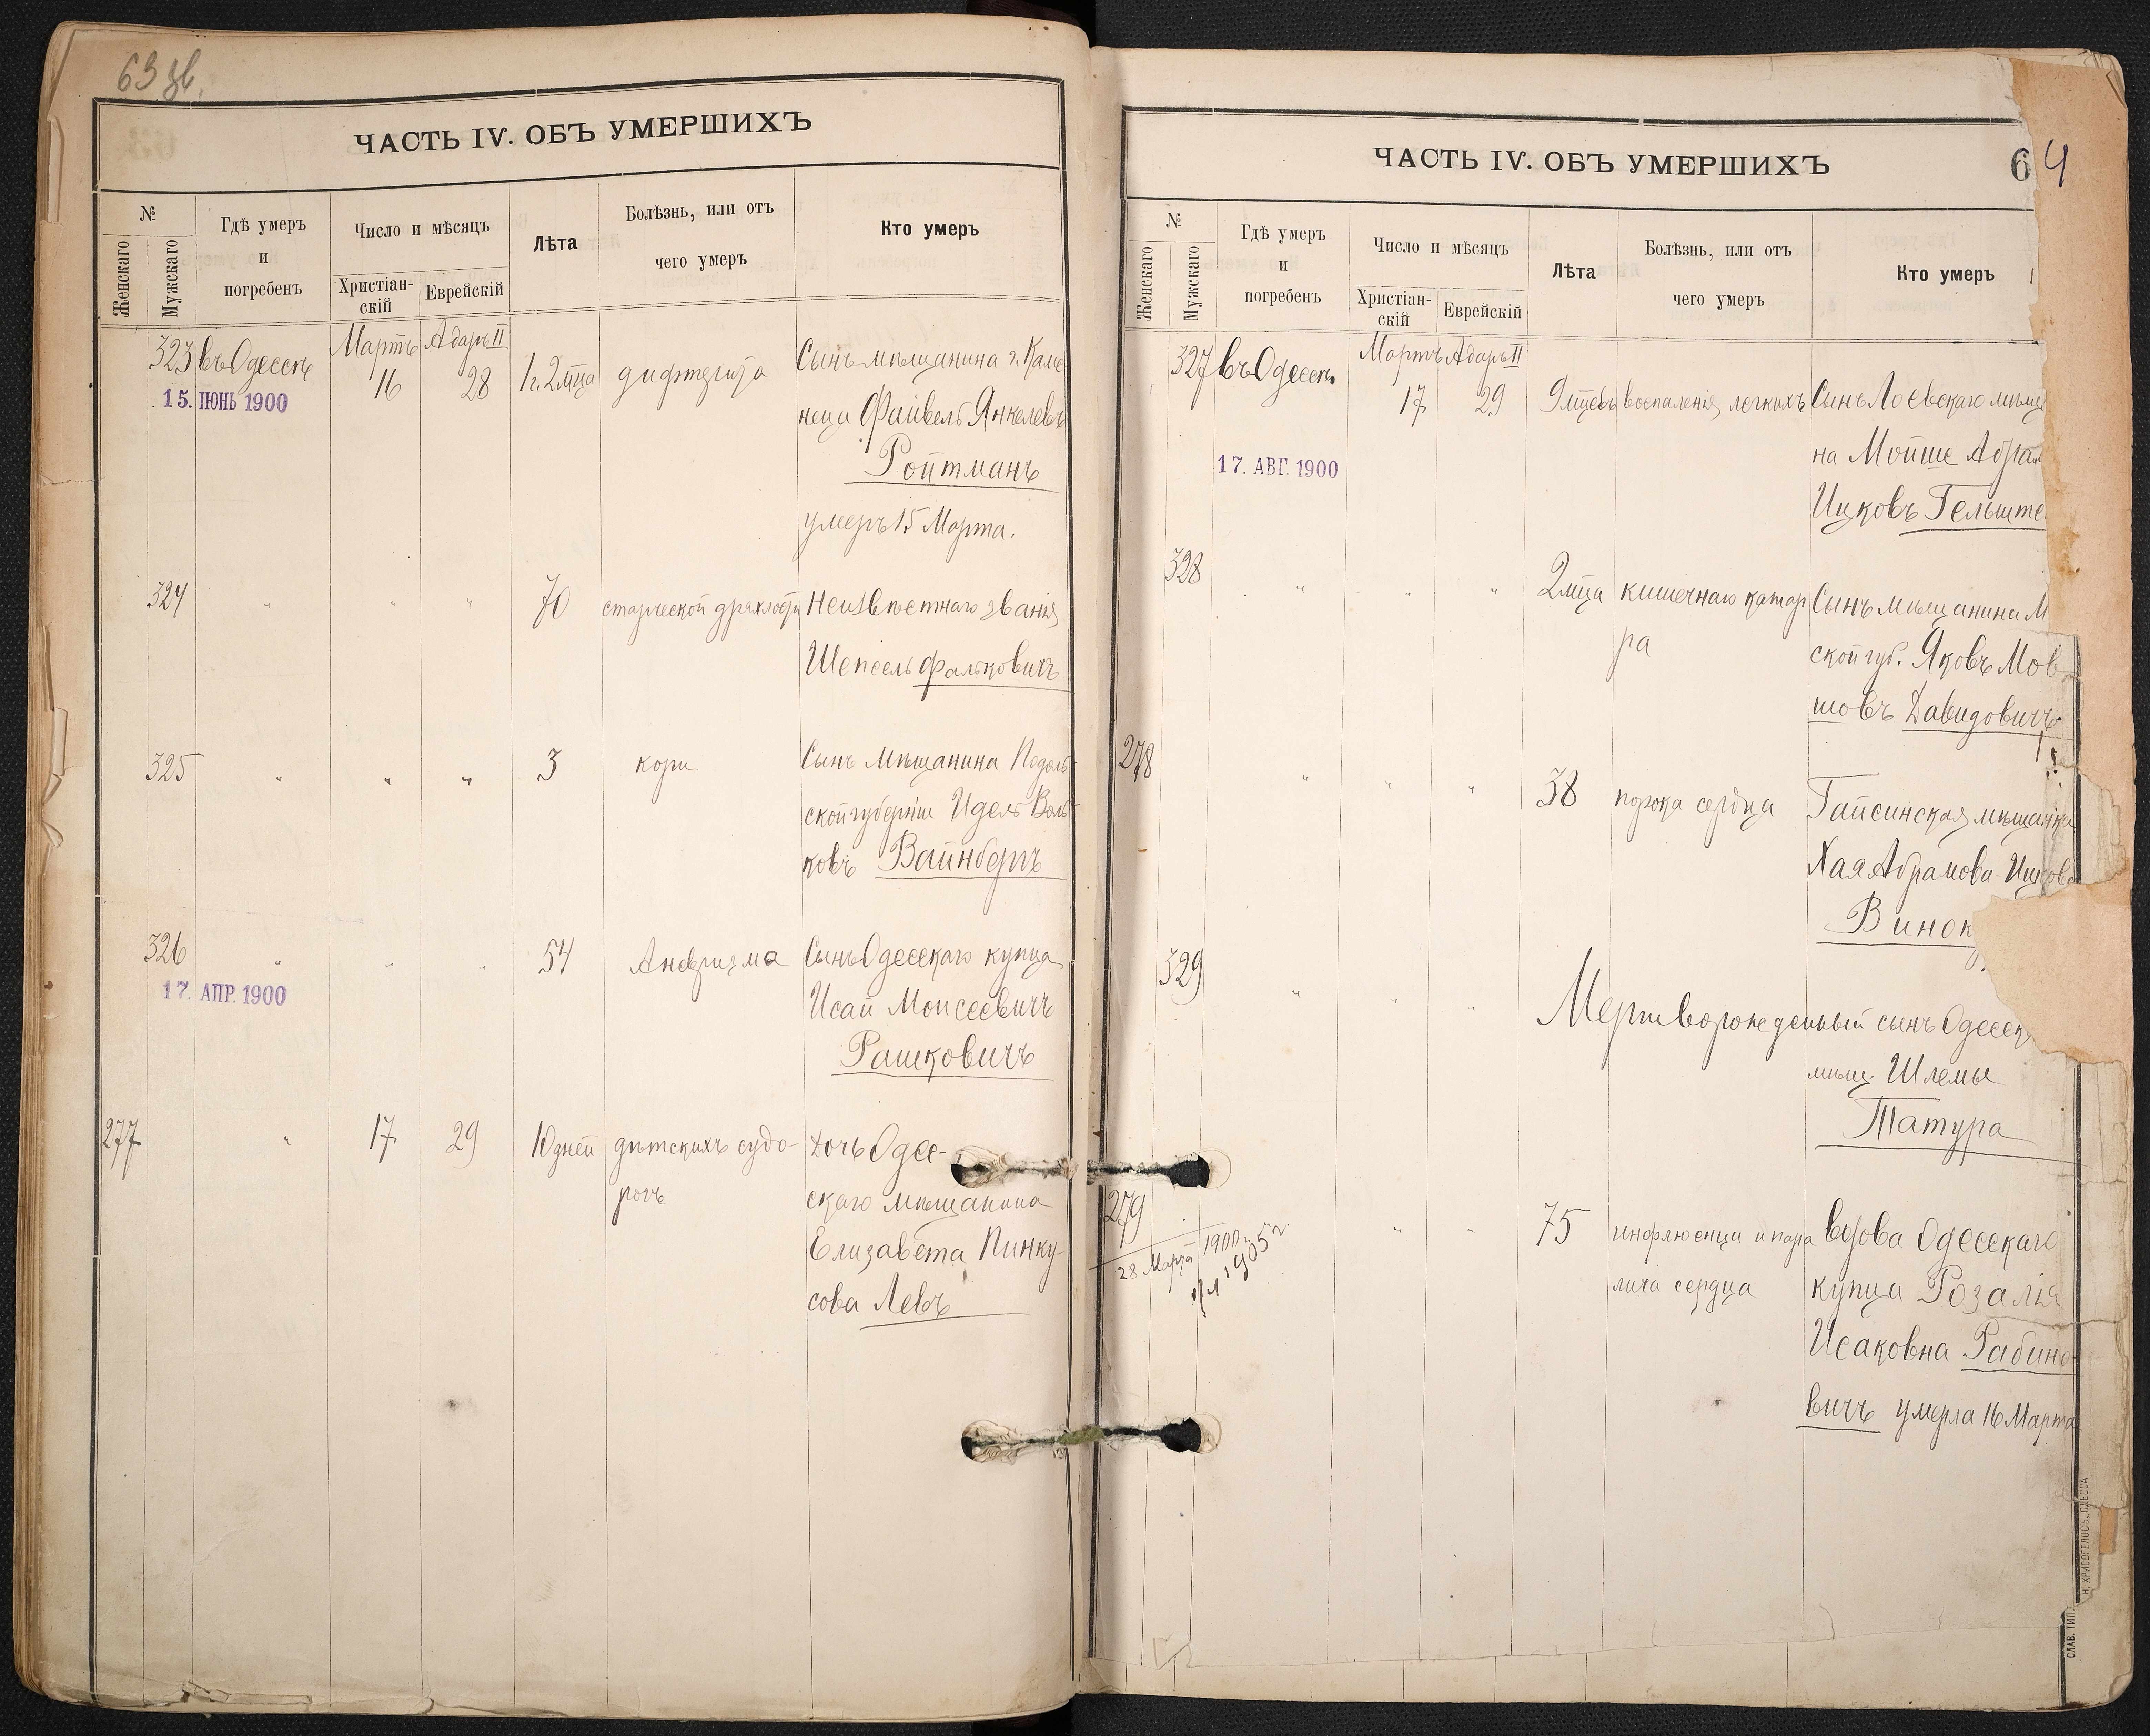 63 зв.
ЧАСТЬ IV. ОБЪ УМЕРШИХЪ
№
Женскаго
Мужскаго
Гдѣ умеръ
и
погребенъ
Число и мѣсяцъ
Христіан-
скій
Еврейскій
Лѣта
Болѣзнь, или отъ
чего умеръ
Кто умеръ
323 въ Одессѣ Мартъ Адаръ II
16 28 1 г. 2 мѣца дифтерита Сынъ мѣщанина г. Каме
15. ІЮНЬ 1900
неца Файвель Янкелевъ
Ройтманъ
умеръ 15 Марта.
324 " " " 70 старческой дряхлости Неизвѣстнаго званія
Шепсель Фальковичъ
325 " " " 3 кори Сынъ мѣщанина Подоль-
ской губерніи Идель Воль-
ковъ Вайнбергъ
326 " " " 54 Аневризма Сынъ Одесскаго купца
17. АПР. 1900
Исай Моисеевичъ
Рашковичъ
277 " 17 29 10 дней дѣтскихъ судо- Дочь Одес-
рогъ
скаго мѣщанина
Елизавета Пинку-
сова Левъ
ЧАСТЬ IV. ОБЪ УМЕРШИХЪ
64
№
Женскаго
Мужскаго
Гдѣ умеръ
и
погребенъ
Число и мѣсяцъ
Христіан-
скій
Еврейскій
Лѣта
Болѣзнь, или отъ
чего умеръ
Кто умеръ
327 въ Одессѣ Мартъ Адаръ II
17 29 9 мѣцевъ воспаленія легкихъ Сынъ Лоевскаго мѣща
17. АВГ. 1900
на Мойше Абрам
Ицковъ Гельште
328 " " " 2 мѣца кишечнаго катар Сынъ мѣщанина М
ра
ской губ. Яковъ Мов-
шовъ Давидовичъ
278 " " " 38 порока сердца Гайсинская мѣщанка
Хая Абрамова-Ицкова
Винок
329 " " " Мертворожденный сынъ Одесск
мѣщ. Шлемы
Татура
279 " " 75 инфлюенци и пара вдова Одесскаго
28 Марта 1900 г.
1905 г.
лича сердца
купца Розалія
Исаковна Рабино-
вичъ умерла 16 Марта
СЛАВ. ТИП. Н. ХРИСОГЕЛОСЪ, ОДЕССА